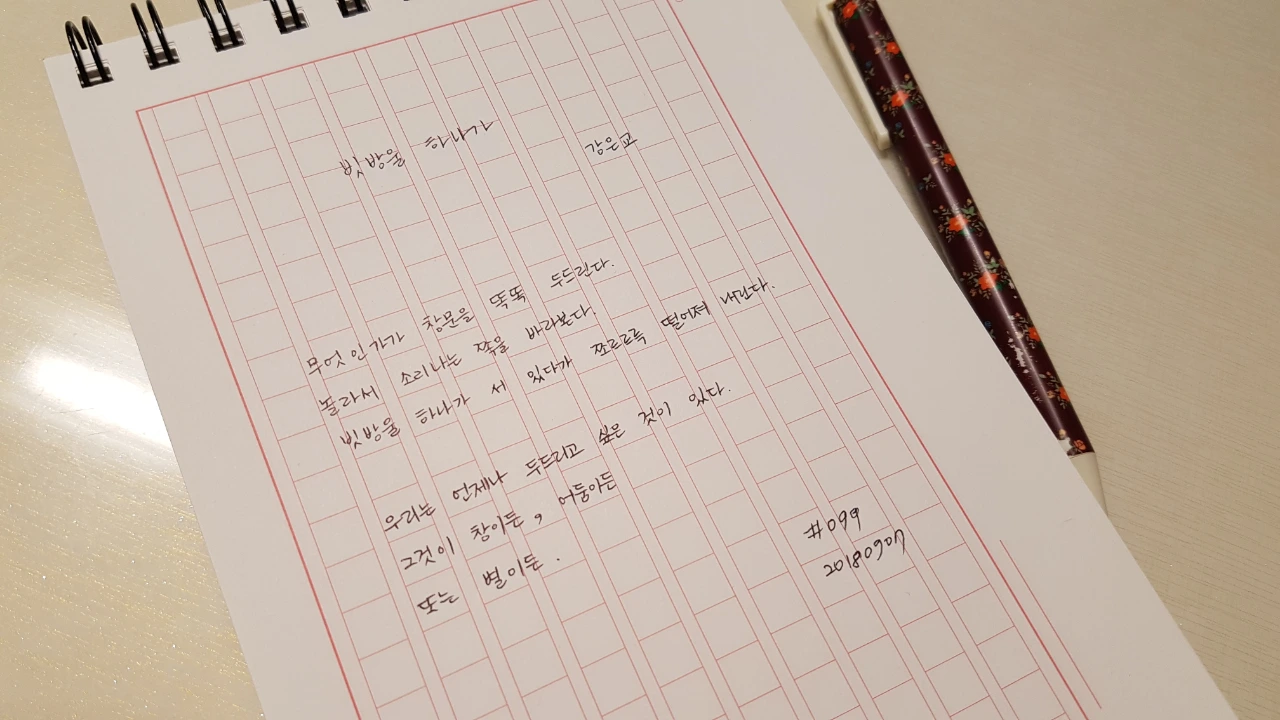 빗방울 하나가
강은교
무엇인가가 창문을 똑똑 두드린다.
놀라서 소리나는 쪽을 바라본다.
빗방울 하나가 서 있다가 쪼르르륵 떨어져 내린다.
우리는 언제나 두드리고 싶은 것이 있다.
그것이 창이든, 어둠이든
또는 별이든.
#069
20180604